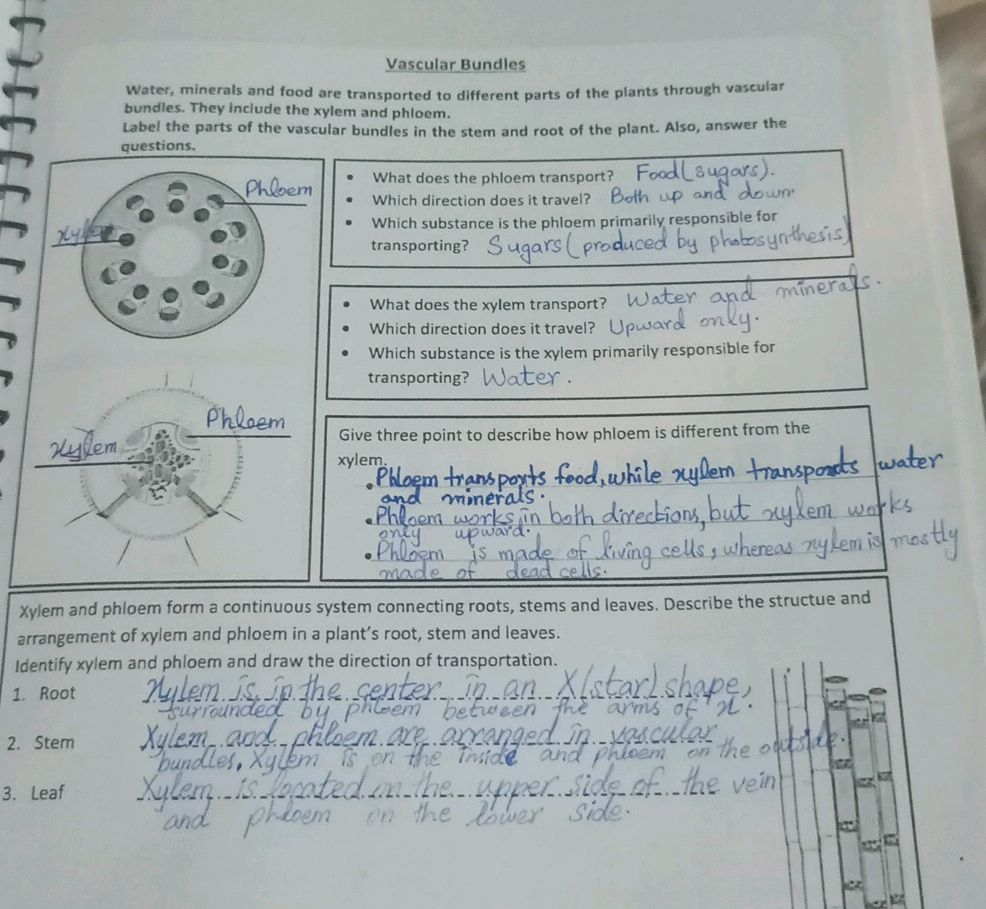 Vascular Bundles
Water, minerals and food are transported to different parts of the plants through vascular
bundles. They include the xylem and phloem.
Label the parts of the vascular bundles in the stem and root of the plant. Also, answer the
questions.
Phloem
xylem
• What does the phloem transport? Food (sugars).
• Which direction does it travel? Both up and down.
• Which substance is the phloem primarily responsible for
transporting? Sugars (produced by photosynthesis)
• What does the xylem transport? Water and minerals.
• Which direction does it travel? Upward only.
• Which substance is the xylem primarily responsible for
transporting? Water.
Phloem
xylem
Give three point to describe how phloem is different from the
xylem.
• Phloem transports food, while xylem transports water
and minerals.
• Phloem works in both directions, but xylem works
only upward.
• Phloem is made of living cells, whereas xylem is mostly
made of dead cells.
Xylem and phloem form a continuous system connecting roots, stems and leaves. Describe the structue and
arrangement of xylem and phloem in a plant's root, stem and leaves.
Identify xylem and phloem and draw the direction of transportation.
1. Root Xylem is in the center in an X(star) shape,
surrounded by phloem between the arms of x.
2. Stem Xylem and phloem are arranged in vascular
bundles, Xylem is on the inside and phloem on the outside.
3. Leaf Xylem is located on the upper side of the vein
and phloem on the lower side.